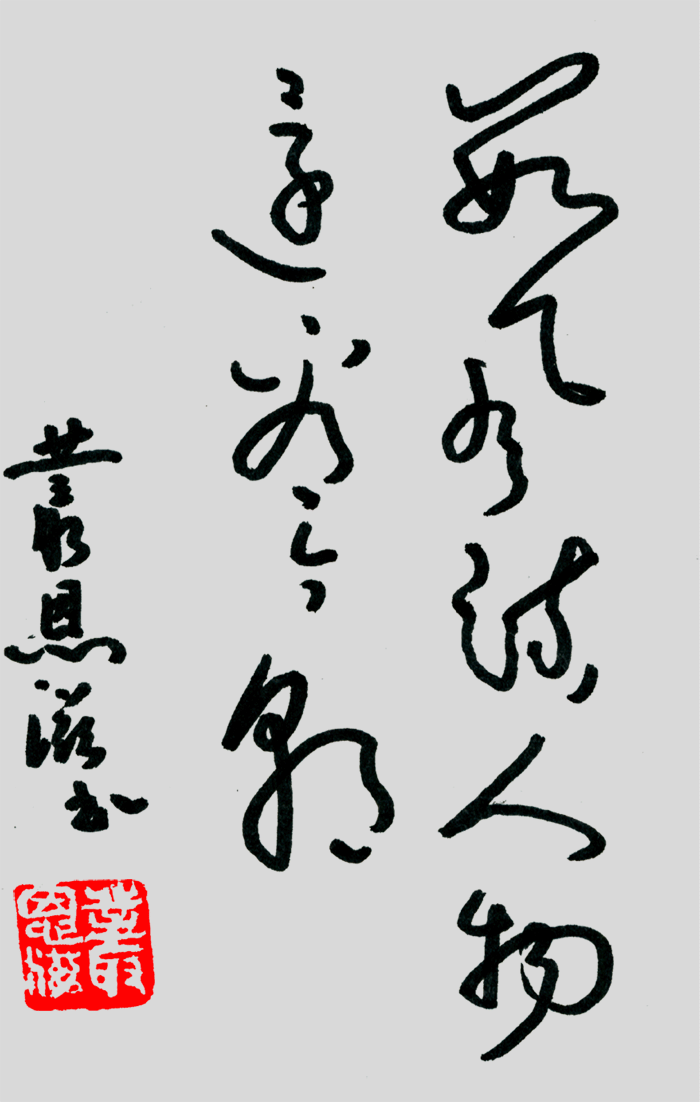 數風流人物
還看今朝
叢恩滋书
叢恩滋